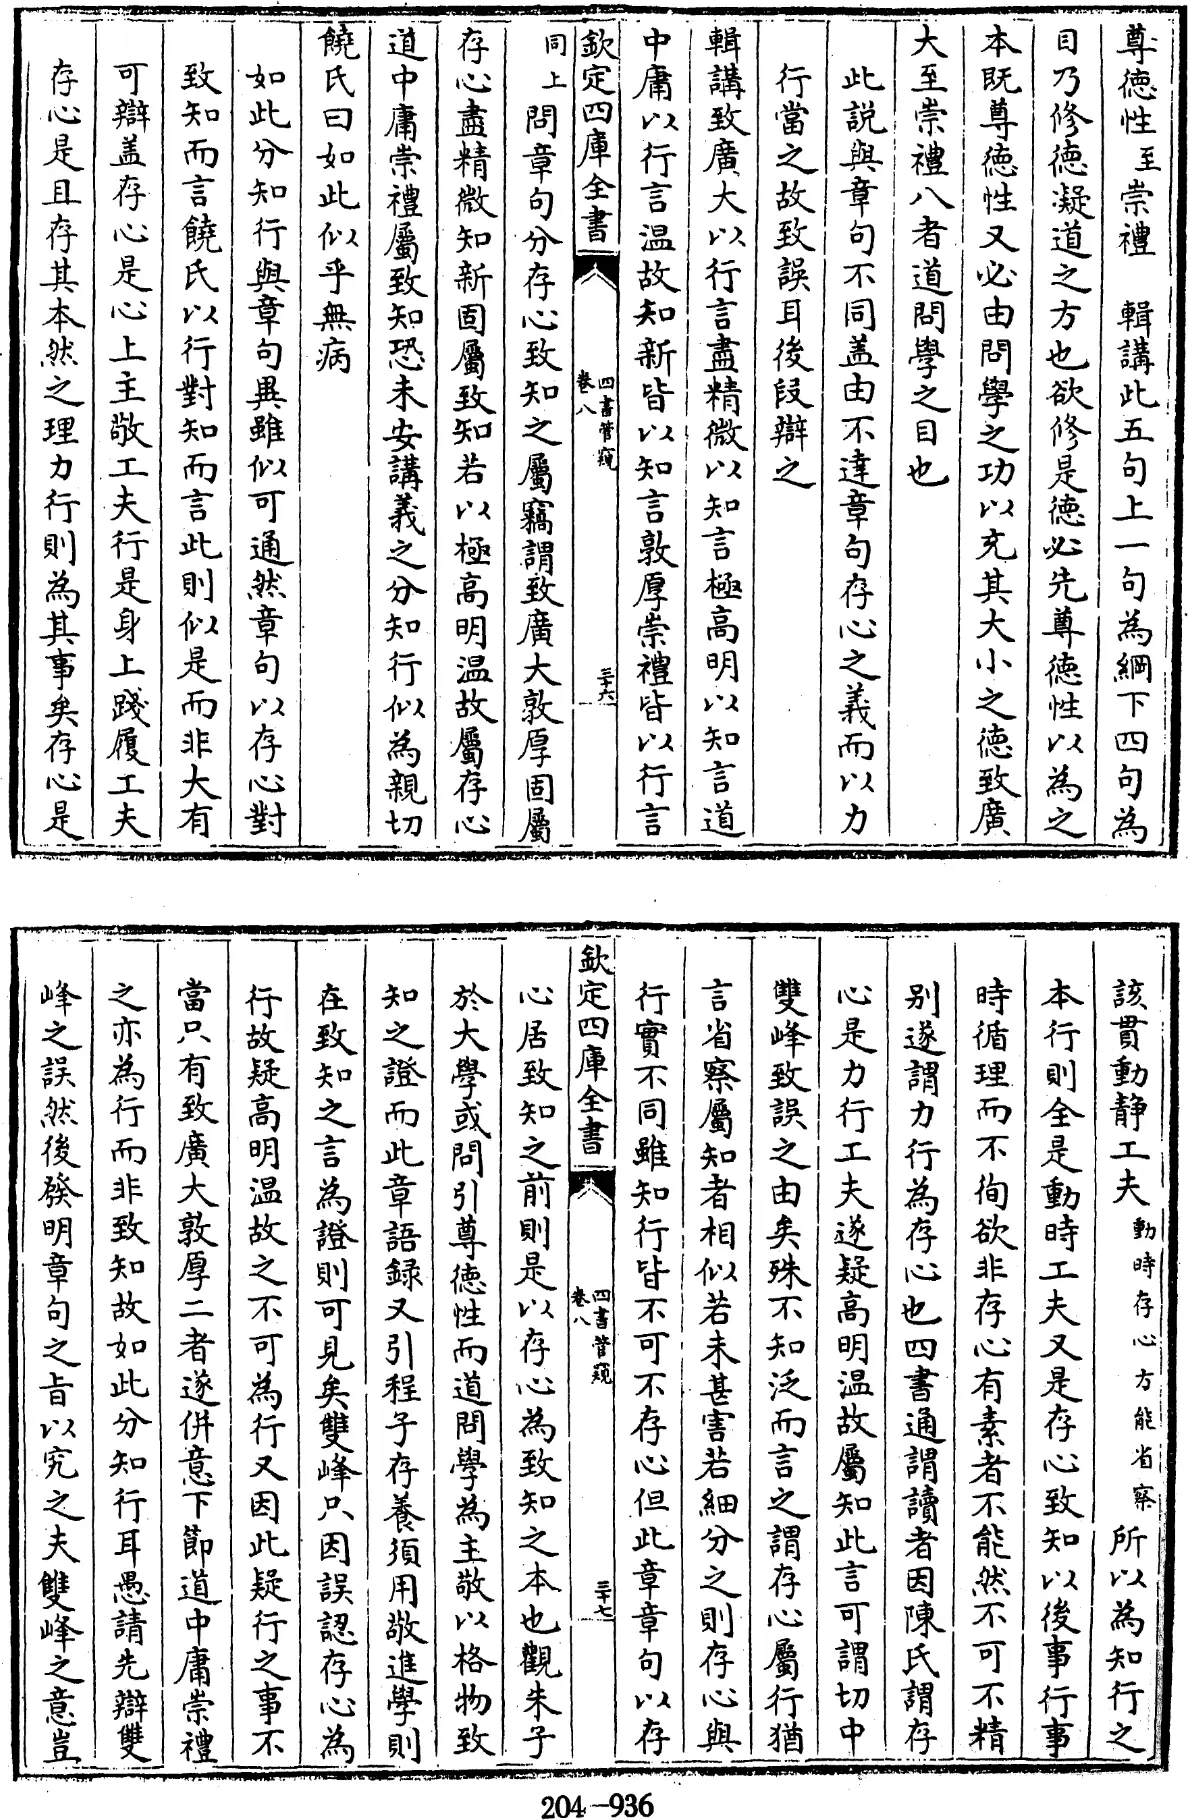 尊德性至崇禮　輯講此五句上一句為綱下四句為
目乃修德凝道之方也欲修是德必先尊德性以為之
本既尊德性又必由問學之功以充其大小之德致廣
大至崇禮八者道問學之目也
此說與章句不同盖由不達章句存心之義而以力
行當之故致誤耳後段辯之
輯講致廣大以行言盡精微以知言極高明以知言道
中庸以行言温故知新皆以知言敦厚崇禮皆以行言
欽定四庫全書
四書管窺
卷八
三十六
同上問章句分存心致知之屬竊謂致廣大敦厚固屬
存心盡精微知新固屬致知若以極高明温故屬存心
道中庸崇禮屬致知恐未安講義之分知行似為親切
饒氏曰如此似乎無病
如此分知行與章句異雖似可通然章句以存心對
致知而言饒氏以行對知而言此則似是而非大有
可辯盖存心是心上主敬工夫行是身上踐履工夫
存心是且存其本然之理力行則為其事矣存心是
該貫動靜工夫動時存心方能省察所以為知行之
本行則全是動時工夫又是存心致知以後事行事
時循理而不徇欲非存心有素者不能然不可不精
别遂謂力行為存心也四書通謂讀者因陳氏謂存
心是力行工夫遂疑高明温故屬知此言可謂切中
雙峰致誤之由矣殊不知泛而言之謂存心屬行猶
言省察屬知者相似若未甚害若細分之則存心與
行實不同雖知行皆不可不存心但此章章句以存
欽定四庫全書
四書管窺
卷八
三十七
心居致知之前則是以存心為致知之本也觀朱子
於大學或問引尊德性而道問學為主敬以格物致
知之證而此章語録又引程子存養須用敬進學則
在致知之言為證則可見矣雙峰只因誤認存心為
行故疑高明温故之不可為行又因此疑行之事不
當只有致廣大敦厚二者遂併意下節道中庸崇禮
之亦為行而非致知故如此分知行耳愚請先辯雙
峰之誤然後發明章句之旨以究之夫雙峰之意豈
204-936